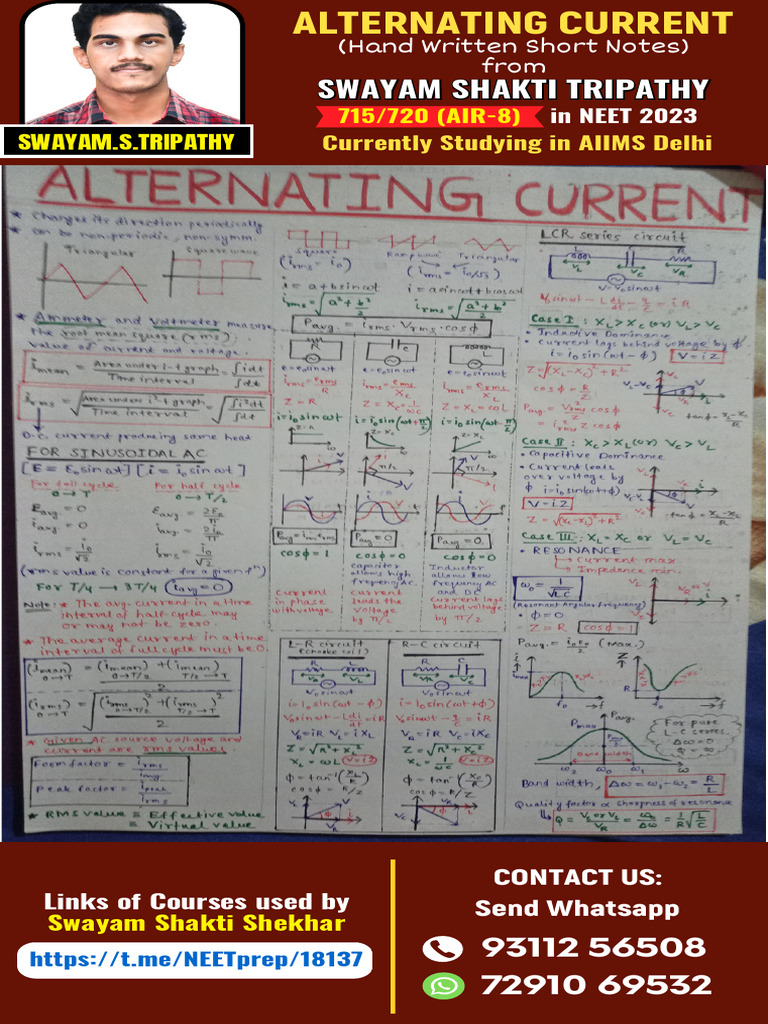 ALTERNATING CURRENT
(Hand Written Short Notes)
from
SWAYAM SHAKTI TRIPATHY
715/720 (AIR-8) in NEET 2023
Currently Studying in AIIMS Delhi
SWAYAM.S.TRIPATHY
ALTERNATING CURRENT
* Changes its direction periodically
* can be non-periodic, non-symm.
Triangular
Square wave
* Ammeter and Voltmeter measure
the root mean square (rms)
value of current and voltage.
i mean = Area under i-t graph / Time interval = ∫idt / ∫dt
i rms = √(Area under i² t graph / Time interval) = √(∫i²dt / ∫dt)
D.C. current producing same heat
FOR SINUSOIDAL AC
[E = E₀ sin ωt] [i = i₀ sin ωt]
For full cycle
0 → T
For half cycle
0 → T/2
E avg = 0
i avg = 0
i rms = i₀/√2
E avg = 2E₀/π
i avg = 2i₀/π
i rms = i₀/√2
(rms value is constant for a given fⁿ)
For T/4 → 3T/4 i avg = 0
Note: * The avg. current in a time
interval of half cycle may
or may not be zero.
* The average current in a time
interval of full cycle must be 0.
(i mean) 0→T = ((i mean) 0→T/2 + (i mean) T/2→T) / 2
(i rms) 0→T = √(((i rms)² 0→T/2 + (i rms)² T/2→T) / 2)
* Given AC source voltage and
current are rms values
Form factor = i rms / i avg
Peak factor = i peak / i rms
* RMS value = Effective value
= Virtual value
Square
(i rms = i₀)
Ramp wave Triangular
(i rms = i₀/√3)
i = a + b sin ωt
i rms = √(a² + b²/2)
i = a sin ωt + b cos ωt
i rms = √(a² + b²/2)
P avg. = i rms · V rms · cos ϕ
R
Z = R
i = i₀ sin ωt
cos ϕ = 1
Current
in phase
with voltage
C
Z = X_C = 1/ωC
i = i₀ sin(ωt + π/2)
P avg = 0
cos ϕ = 0
Capacitor
allows high
frequency AC
current
leads the
voltage
by π/2
L
Z = X_L = ωL
i = i₀ sin(ωt - π/2)
P avg = 0
cos ϕ = 0
Inductor
allows low
frequency AC
and DC
Current lags
behind voltage
by π/2
L-R circuit
(choke coil)
V₀ sin ωt
i = I₀ sin(ωt - ϕ)
V₀ sin ωt - L di/dt = iR
V_R = iR V_L = iX_L
Z = √(R² + X_L²)
X_L = ωL V = iZ
ϕ = tan⁻¹(X_L/R)
cos ϕ = R/Z
R-C circuit
V₀ sin ωt
i = I₀ sin(ωt + ϕ)
V₀ sin ωt - q/C = iR
V_R = iR V_C = iX_C
X_C = 1/ωC V = iZ
ϕ = tan⁻¹(X_C/R)
cos ϕ = R/Z
LCR series circuit
V = V₀ sin ωt
V₀ sin ωt - L di/dt - q/C = iR
Case I : X_L > X_C (or) V_L > V_C
• Inductive Dominance
• Current lags behind voltage by ϕ
i = i₀ sin(ωt - ϕ) V = iZ
Z = √((X_L - X_C)² + R²)
cos ϕ = R/Z
P avg = V rms i rms cos ϕ
= i² rms Z cos ϕ
Case II : X_C > X_L (or) V_C > V_L
• Capacitive Dominance
• Current leads
over voltage by
ϕ i = i₀ sin(ωt + ϕ)
V = iZ
Case III : X_L = X_C or V_L = V_C
• RESONANCE
Current max
Impedence min.
ω₀ = 1/√LC
(Resonant Angular frequency)
• ϕ = 0
Z = R cos ϕ = 1
(Max.)
For pure
L-C series
Δω = 0
Q = ∞
Band width, Δω = ω₁ - ω₂ = R/L
Quality factor α sharpness of resonance
Q = V_L or V_C / V_R = ω₀/Δω = 1/R √(L/C)
Links of Courses used by
Swayam Shakti Shekhar
https://t.me/NEETprep/18137
CONTACT US:
Send Whatsapp
93112 56508
72910 69532